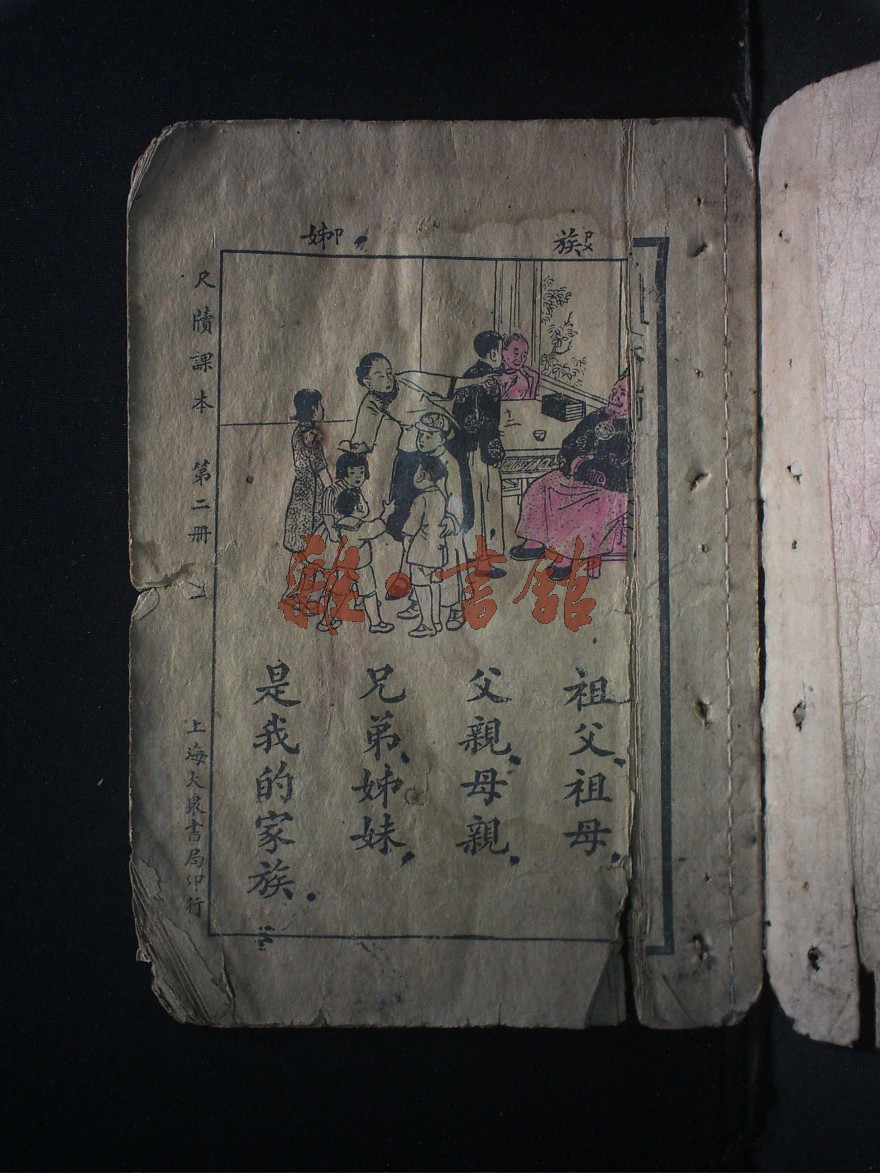 族ㄗㄨ
姊ㄗ
祖父、祖母，
父親、母親，
兄弟、姊妹，
是我的家族．
尺牘課本 第二冊 一
上海大眾書局印行
雜·書館